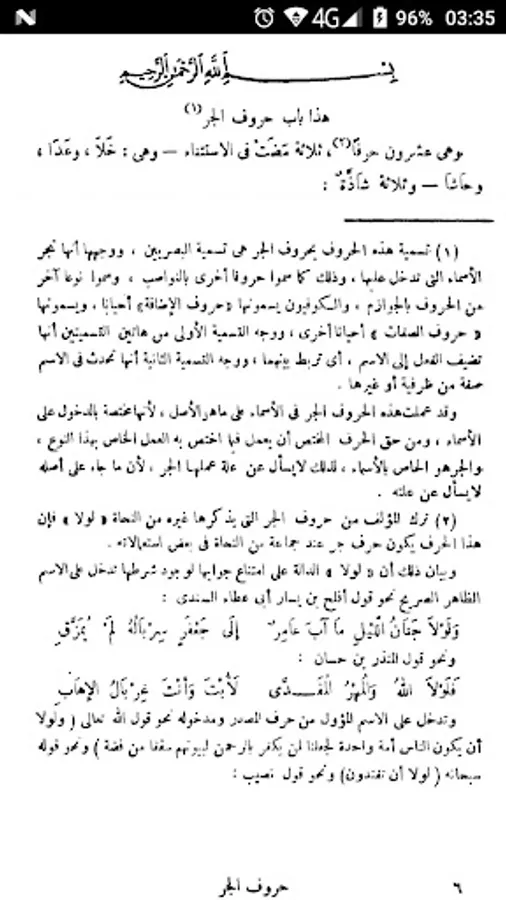 N 4G 96% 03:35
بسم الله الرحمن الرحيم
هذا باب حروف الجر (١)
وهى عشرون حرفًا(٢)، ثلاثة مَضَتْ فى الاستثناء — وهى : خَلَا ، وعَدَا ،
وحَاشَا — وثلاثة شَاذَّةٌ :
(١) تسمية هذه الحروف بحروف الجر هى تسمية البصريين ، ووجهها أنها تجر
الأسماء التى تدخل عليها ، وذلك كما سموا حروفا أخرى بالنواصب ، وسموا نوعا آخر
من الحروف بالجوازم ، والكوفيون يسمونها «حروف الإضافة» أحيانا ، ويسمونها
« حروف الصفات » أحيانا أخرى ، ووجه التسمية الأولى من هاتين التسميتين أنها
تضيف الفعل إلى الاسم ، أى تربط بينهما ، ووجه التسمية الثانية أنها تحدث فى الاسم
صفة من ظرفية أو غيرها .
وقد عملت هذه الحروف الجر فى الأسماء على ماهو الأصل ، لأنها مختصة بالدخول على
الأسماء ، ومن حق الحرف المختص أن يعمل فيما اختص به العمل الخاص بهذا النوع ،
والجر هو الخاص بالأسماء ، لذلك لايسأل عن علة عملها الجر ، لأن ما جاء على أصله
لايسأل عن علته .
(٢) ترك المؤلف من حروف الجر التى يذكرها غيره من النحاة « لولا » فإن
هذا الحرف يكون حرف جر عند جماعة من النحاة فى بعض استعمالاته .
وبيان ذلك أن « لولا » الدالة على امتناع جوابها لوجود شرطها تدخل على الاسم
الظاهر الصريح نحو قول أفلح بن يسار أبى عطاء السندى :
وَلَوْلاَ جَنَانُ اللَّيْلِ مَا آبَ عَامِرٌ إلَى جَعْفَرٍ سِرْبَالُهُ لَمْ يُمَزَّقِ
ونحو قول المنذر بن حسان :
فَلَوْلاَ اللهُ وَالْمُهْرُ الْمُفَدَّى لَأُبْتَ وَأَنْتَ غِرْبَالُ الإِهَابِ
وتدخل على الاسم المؤول من حرف المصدر ومدخوله نحو قول الله تعالى ( ولولا
أن يكون الناس أمة واحدة لجعلنا لمن يكفر بالرحمن لبيوتهم سقفا من فضة ) ونحو قوله
سبحانه ( لولا أن تفندون) ونحو قول نصيب :
٦ حروف الجر